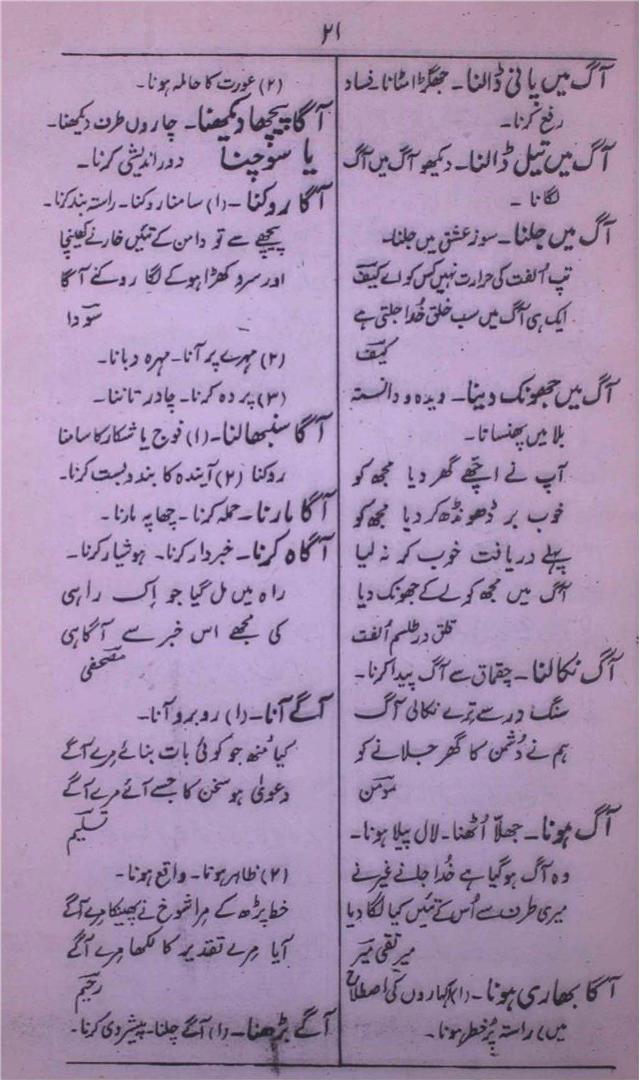 ۲۱
آگ میں پانی ڈالنا۔ جھگڑا مٹانا فساد
رفع کرنا۔
آگ میں تیل ڈالنا۔ دیکھو آگ میں آگ
لگانا۔
آگ میں جلنا۔ سوز عشق میں جلنا۔
تپ اُلفت کی حرارت نہیں کس کو اے کیفؔ
ایک ہی آگ میں سب خلق خُدا جلتی ہے
کیفؔ
آگ میں جھونک دینا۔ دیدہ و دانستہ
بلا میں پھنسانا۔
آپ نے اچھے گھر دیا مجھ کو
خوب بر ڈھونڈھ کر دیا مجھ کو
پہلے دریافت خوب کر نہ لیا
آگ میں مجھ کو لے کے جھونک دیا
قلق در طلسم اُلفت
آگ نکالنا۔ چقماق سے آگ پیدا کرنا۔
سنگ در سے ترے نکالی آگ
ہم نے دُشمن کا گھر جلانے کو
مومنؔ
آگ ہونا۔ جھلّا اُٹھنا۔ لال پیلا ہونا۔
وہ آگ ہو گیا ہے خُدا جانے غیر نے
میری طرف سے اُس کے تئیں کیا لگا دیا
میر تقی میرؔ
آگا بھاری ہونا۔ (۱) (کہاروں کی اصطلاح
میں) راستہ پُر خطر ہونا۔
(۲) عورت کا حاملہ ہونا۔
آگا پیچھا دیکھنا۔ چاروں طرف دیکھنا۔
یا سوچنا دور اندیشی کرنا۔
آگا روکنا۔ (۱) سامنا روکنا۔ راستہ بند کرنا۔
پیچھے سے تو دامن کے تئیں خار نے کھینچا
اور سرو کھڑا ہو کے لگا روکنے آگا
سوداؔ
(۲) مہرے پر آنا۔ مہرہ دبانا۔
(۳) پردہ کرنا۔ چادر تاننا۔
آگا سنبھالنا۔ (۱) فوج یا شکار کا سامنا
روکنا (۲) آیندہ کا بندوبست کرنا۔
آگا مارنا۔ حملہ کرنا۔ چھاپہ مارنا۔
آگاہ کرنا۔ خبردار کرنا۔ ہوشیار کرنا۔
راہ میں مل گیا جو اِک راہی
کی مجھے اس خبر سے آگاہی
مصحفیؔ
آگے آنا۔ (۱) روبرو آنا۔
کیا مُنھ جو کوئی بات بنائے مرے آگے
دعویٰ ہو سخن کا جسے آئے مرے آگے
تسلیمؔ
(۲) ظاہر ہونا۔ واقع ہونا۔
خط پڑھ کے مرا شوخ نے پھینکا مرے آگے
آیا مرے تقدیر کا لکھا مرے آگے
رحیمؔ
آگے بڑھنا۔ (۱) آگے چلنا۔ پیشروی کرنا۔